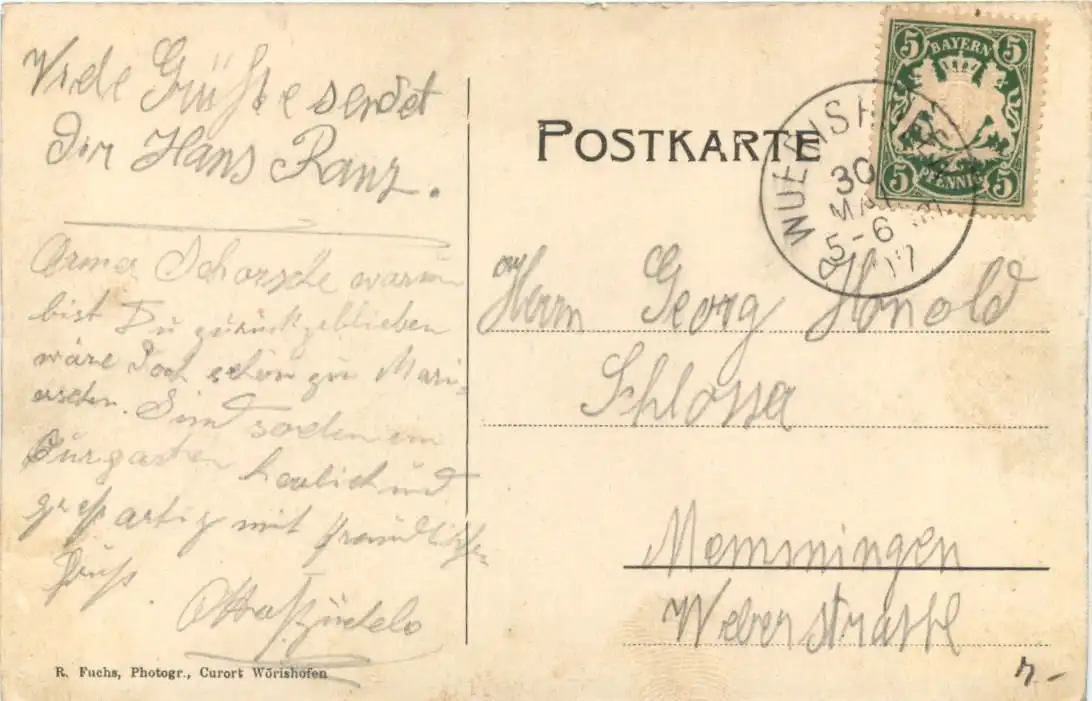 Viele Grüße sendet
Dir Hans Ranz.
Arma Schorsche warum
bist Du zurückgeblieben
wäre Doch schön zu
Sind soeben im
Curgarten herlich und
großartig mit freundlichen
Gruß
Otto
R. Fuchs, Photogr., Curort Wörishofen
POSTKARTE
BAYERN
5 5
5 PFENNIG 5
30
MAI
5-6
Herrn Georg Honold
Schlosser
Memmingen
Weberstraße